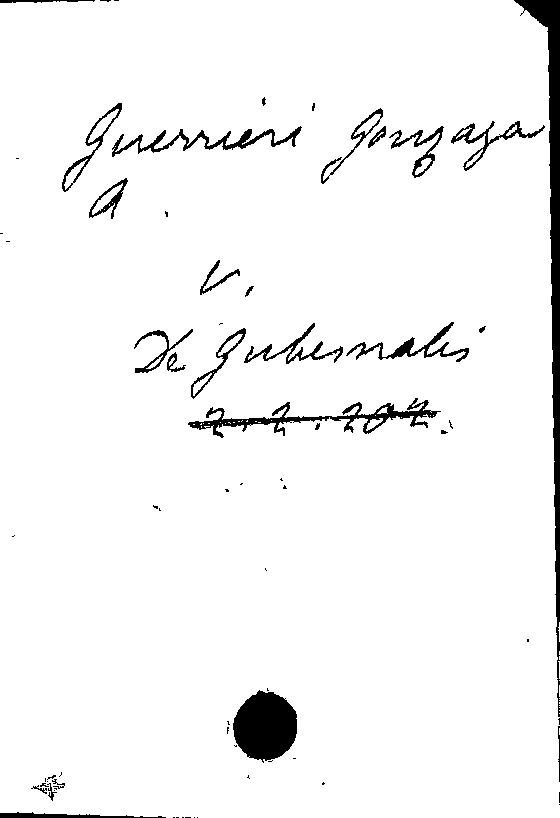 Guerrieri Gonzaga
A.
V.
De Gubernatis
2.2.202.